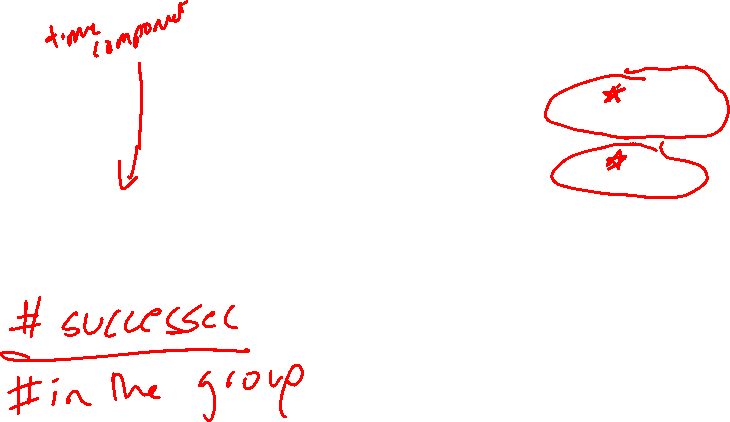 time
component
# successes
# in the group